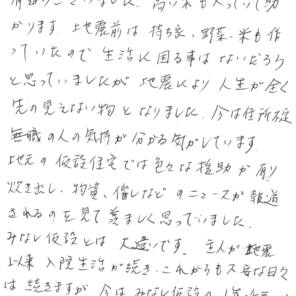 かります。上地震前は 持ち家、野菜、米も作
っていたので 生活に困る事はないだろう
と思っていましたが 地震により 人生が全く
先の見えない物となりました。今は住所不定
無職の人の気持が分かる気がしています。
地元の仮設住宅では色々な援助が有り
炊き出し、物資、催しなどのニュースが報道
されるのを見て羨ましく思っていました。
みなし仮設とは大違いです。主人が地震
以来入院生活が続き、これからも不安な日々
は続きますが 今はみなし仮設の